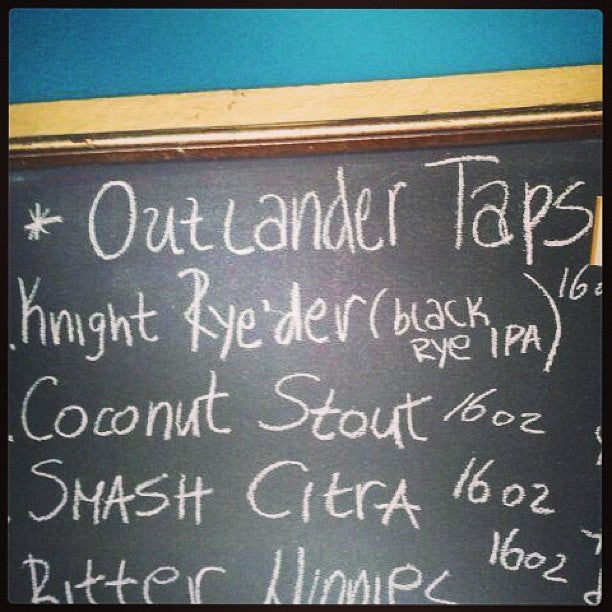 * Outlander Taps
Knight Rye'der (black Rye IPA) 16
Coconut Stout 16oz
SMASH CitrA 16oz
Bitter 16oz